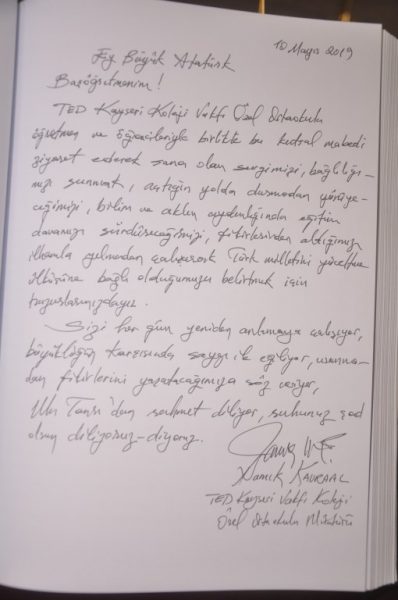 10 Mayıs 2019
Ey Büyük Atatürk
Başöğretmenim!
TED Kayseri Koleji Vakfı Özel Ortaokulu
öğretmen ve öğrencileriyle birlikte bu kutsal mabedi
ziyaret ederek sana olan sevgimizi, bağlılığı-
mızı sunmak, açtığın yolda durmadan yürüye-
ceğimizi, bilim ve aklın aydınlığında eğitim
davanızı sürdüreceğimizi, fikirlerinden aldığımız
ilhamla yılmadan çalışarak Türk milletini yüceltme
ülküsüne bağlı olduğumuzu belirtmek için
huzurlarınızdayız.
Sizi her gün yeniden anlamaya çalışıyor,
büyüklüğün karşısında saygı ile eğiliyor, usanma-
dan fikirlerini yaşatacağımıza söz veriyor,
Ulu Tanrı'dan rahmet diliyor, ruhunuz şad
olsun diliyoruz-diyoruz.
Namık KAVRAAL
TED Kayseri Vakfı Koleji
Özel Ortaokulu Müdürü